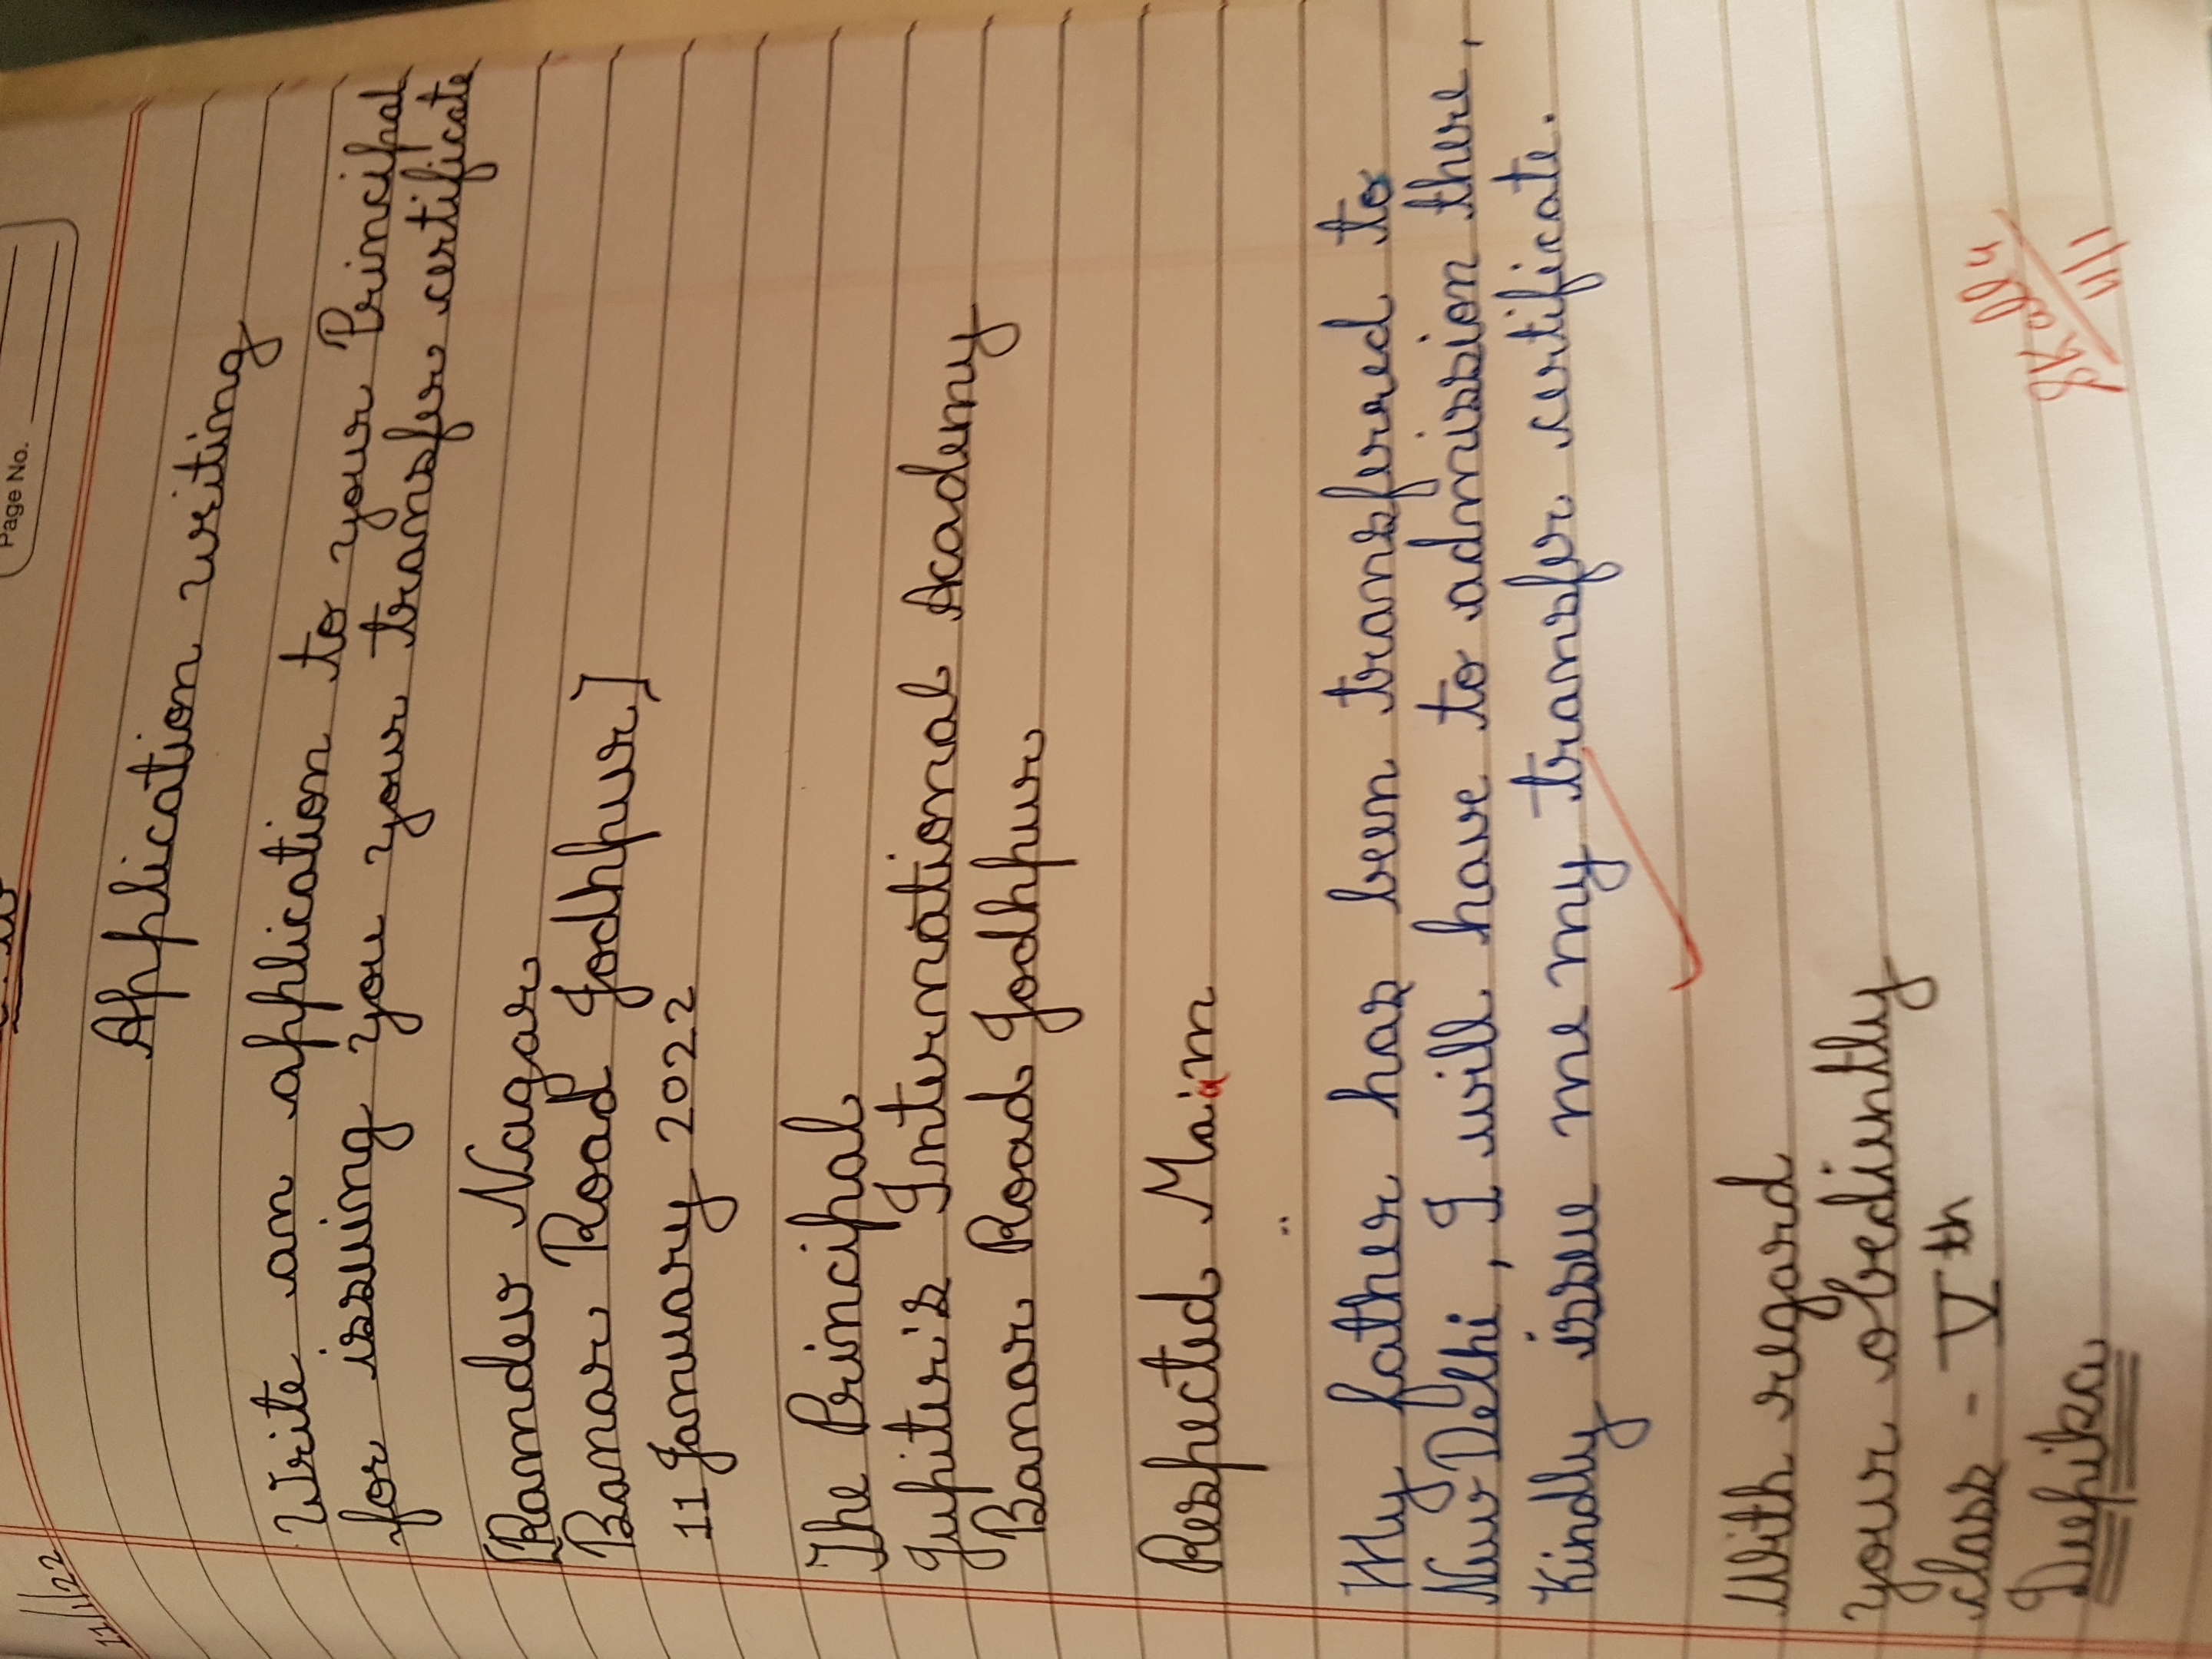 Page No.
11/1/22
Application writing
Write an application to your Principal
for issuing you your transfer certificate
[Ramdev Nagar
Banar Road Jodhpur]
11 January 2022
The Principal
Jupiter's International Academy
Banar Road Jodhpur
Respected Maim
My father has been transferred to
New Delhi, I will have to admission there,
Kindly issue me my transfer certificate.
With regard
your obediently
class - Vth
Deepika